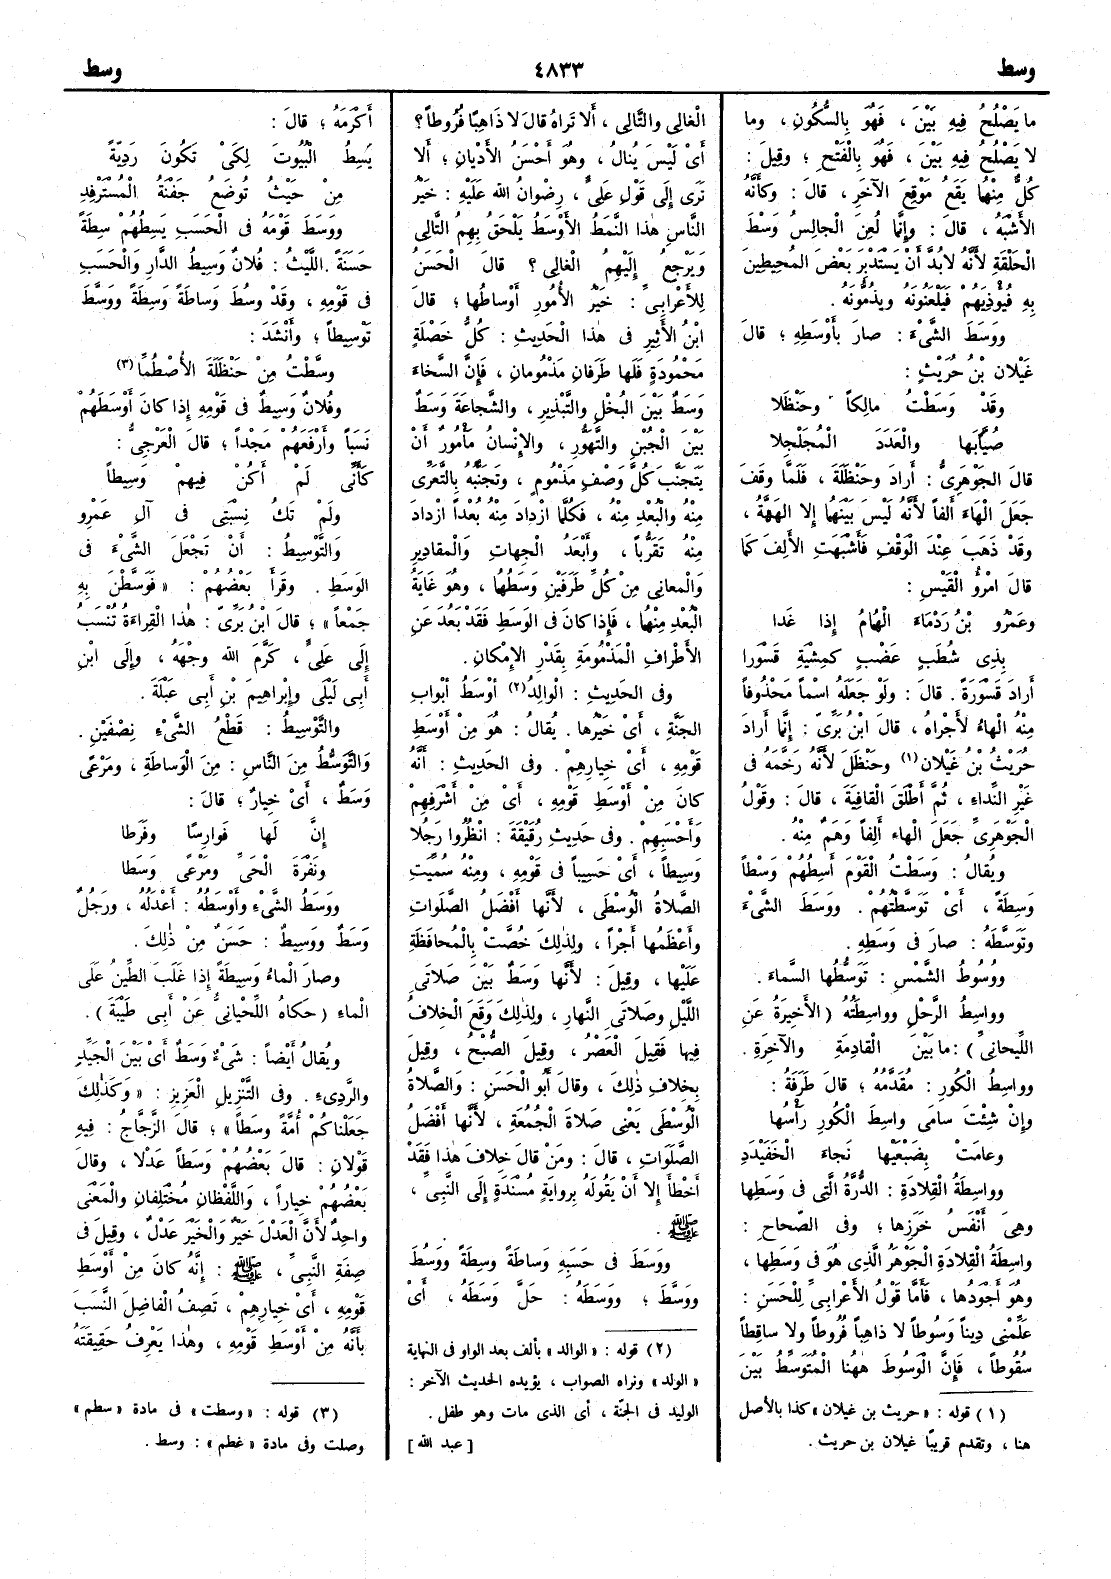 وسط
٤٨٣٣
وسط
ما يَصْلُحُ فِيهِ بَيْنَ ، فَهُوَ بِالسُّكُونِ ، وما
لا يَصْلُحُ فِيهِ بَيْنَ ، فَهُوَ بِالْفَتْحِ ؛ وقِيلَ :
كُلٌّ مِنْهُما يَقَعُ مَوْقِعَ الآخَرِ ، قالَ : وكَأَنَّهُ
الأَشْبَهُ ، قالَ : وإِنَّما لُعِنَ الْجالِسُ وَسْطَ
الْحَلْقَةِ لأَنَّهُ لابُدَّ أَنْ يَسْتَدْبِرَ بَعْضَ الْمُحِيطِينَ
بِهِ فَيُؤْذِيَهُمْ فَيَلْعَنُونَهُ ويذُمُّونَهُ .
ووَسَطَ الشَّىْءَ : صارَ بِأَوْسَطِهِ ؛ قالَ
غَيْلانُ بْنُ حُرَيْثٍ :
وقَدْ وَسَطْتُ مالِكاً وحَنْظَلا
صُيَّابَها والْعَدَدَ الْمُجَلْجِلا
قالَ الْجَوْهَرِىُّ : أَرادَ وحَنْظَلَةَ ، فَلَمَّا وَقَفَ
جَعَلَ الْهاءَ أَلِفاً لأَنَّهُ لَيْسَ بَيْنَهُما إِلا الْهَهَّةُ ،
وقَدْ ذَهَبَ عِنْدَ الْوَقْفِ فَأَشْبَهَتِ الأَلِفَ كَما
قالَ امْرُؤُ الْقَيْسِ :
وعَمْرُو بْنُ دَرْماءَ الْهُمامُ إِذا غَدا
بِذِى شُطَبٍ عَضْبٍ كَمِشْيَةِ قَسْوَرا
أَرادَ قَسْوَرَةً . قالَ : ولَوْ جَعَلَهُ اسْماً مَحْذُوفاً
مِنْهُ الْهاءُ لأَجْراهُ ، قالَ ابْنُ بَرِّىّ : إِنَّما أَرادَ
حُرَيْثُ بْنُ غَيْلانَ (١) وحَنْظَلَ لأَنَّهُ رَخَّمَهُ فى
غَيْرِ النِّداءِ ، ثُمَّ أَطْلَقَ الْقافِيَةَ ، قالَ : وقَوْلُ
الْجَوْهَرِىِّ جَعَلَ الْهاءَ أَلِفاً وَهَمٌ مِنْهُ .
ويُقالُ : وَسَطْتُ الْقَوْمَ أَسِطُهُمْ وَسْطاً
وَسِطَةً ، أَىْ تَوَسَّطْتُهُمْ . ووَسَطَ الشَّىْءَ
وتَوَسَّطَهُ : صارَ فى وَسَطِهِ .
ووُسُوطُ الشَّمْسِ : تَوَسُّطُها السَّماءَ .
وواسِطُ الرَّحْلِ وواسِطَتُهُ (الأَخِيرَةُ عَنِ
اللِّحْيانِىِّ) : ما بَيْنَ الْقادِمَةِ والآخِرَةِ .
وواسِطُ الْكُورِ : مُقَدَّمُهُ ؛ قالَ طَرَفَةُ :
وإِنْ شِئْتَ سامَى واسِطَ الْكُورِ رَأْسُها
وعامَتْ بِضَبْعَيْها نَجاءَ الْخَفَيْدَدِ
وواسِطَةُ الْقِلادَةِ : الدُّرَّةُ الَّتِى فى وَسَطِها
وهِىَ أَنْفَسُ خَرَزِها ؛ وفى الصِّحاحِ :
واسِطَةُ الْقِلادَةِ الْجَوْهَرُ الَّذِى هُوَ فى وَسَطِها ،
وهُوَ أَجْوَدُها ، فَأَمَّا قَوْلُ الأَعْرابِىِّ لِلْحَسَنِ :
عَلِّمْنِى دِيناً وَسُوطاً لا ذاهِباً فُرُوطاً ولا ساقِطاً
سُقُوطاً ، فَإِنَّ الْوَسُوطَ هٰهُنا الْمُتَوَسِّطُ بَيْنَ
(١) قوله : «حريث بن غيلان» كذا بالأصل
هنا ، وتقدم قريبًا غيلان بن حريث .
الْغالِى والتَّالِى ، أَلا تَراهُ قالَ لا ذَاهِبًا فُرُوطاً ؟
أَىْ لَيْسَ يُنالُ ، وهُوَ أَحْسَنُ الأَدْيانِ ؛ أَلا
تَرَى إِلَى قَوْلِ عَلِىٍّ ، رِضْوانُ الله عَلَيْهِ : خَيْرُ
النَّاسِ هٰذا النَّمَطُ الأَوْسَطُ يَلْحَقُ بِهِمُ التَّالِى
وَيَرْجِعُ إِلَيْهِمُ الْغالِى ؟ قالَ الْحَسَنُ
لِلأَعْرابِىِّ : خَيْرُ الأُمُورِ أَوْساطُها ؛ قالَ
ابْنُ الأَثِيرِ فى هٰذا الْحَدِيثِ : كُلُّ خَصْلَةٍ
مَحْمُودَةٍ فَلَها طَرَفانِ مَذْمُومانِ ، فَإِنَّ السَّخاءَ
وَسَطٌ بَيْنَ الْبُخْلِ والتَّبْذِيرِ ، والشَّجاعَةَ وَسَطٌ
بَيْنَ الْجُبْنِ والتَّهَوُّرِ ، والإِنْسانُ مَأْمُورٌ أَنْ
يَتَجَنَّبَ كُلَّ وَصْفٍ مَذْمُومٍ ، وتَجَنُّبُهُ بِالتَّعَرِّى
مِنْهُ والْبُعْدِ مِنْهُ ، فَكُلَّما ازْدادَ مِنْهُ بُعْداً ازْدادَ
مِنْهُ تَقَرُّباً ، وأَبْعَدُ الْجِهاتِ والْمَقادِيرِ
والْمعانِى مِنْ كُلِّ طَرَفَيْنِ وَسَطُها ، وهُوَ غايَةُ
الْبُعْدِ مِنْها ، فَإِذا كانَ فى الْوَسَطِ فَقَدْ بَعُدَ عَنِ
الأَطْرافِ الْمَذْمُومَةِ بِقَدْرِ الإِمْكانِ .
وفى الْحَدِيثِ : الْوالِدُ (٢) أَوْسَطُ أَبْوابِ
الجَنَّةِ ، أَىْ خَيْرُها . يُقالُ : هُوَ مِنْ أَوْسَطِ
قَوْمِهِ ، أَىْ خِيارِهِمْ . وفى الْحَدِيثِ : أَنَّهُ
كانَ مِنْ أَوْسَطِ قَوْمِهِ ، أَىْ مِنْ أَشْرَفِهِمْ
وأَحْسَبِهِمْ . وفى حَدِيثِ رُقَيْقَةَ : انْظُرُوا رَجُلا
وَسِيطاً ، أَىْ حَسِيباً فى قَوْمِهِ ، ومِنْهُ سُمِّيَتِ
الصَّلاةُ الْوُسْطَى ، لأَنَّها أَفْضَلُ الصَّلَواتِ
وأَعْظَمُها أَجْراً ، ولِذٰلِكَ خُصَّتْ بِالْمُحافَظَةِ
عَلَيْها ، وقِيلَ : لأَنَّها وَسَطٌ بَيْنَ صَلاتَىِ
اللَّيْلِ وصَلاتَىِ النَّهارِ ، ولِذٰلِكَ وَقَعَ الْخِلافُ
فِيها فَقِيلَ الْعَصْرُ ، وقِيلَ الصُّبْحُ ، وقِيلَ
بِخِلافِ ذٰلِكَ ، وقالَ أَبُو الْحَسَنِ : والصَّلاةُ
الْوُسْطَى يَعْنِى صَلاةَ الْجُمُعَةِ ، لأَنَّها أَفْضَلُ
الصَّلَواتِ ، قالَ : ومَنْ قالَ خِلافَ هٰذا فَقَدْ
أَخْطَأَ إِلا أَنْ يَقُولَهُ بِرِوايَةٍ مُسْنَدَةٍ إِلَى النَّبِىِّ ،
ﷺ .
ووَسَطَ فى حَسَبِهِ وَساطَةً وسِطَةً ووَسُطَ
ووَسَّطَ ؛ ووَسَطَهُ : حَلَّ وَسَطَهُ ، أَىْ
(٢) قوله : «الوالد» بألف بعد الواو فى النهاية
«الولد» ونراه الصواب ، يؤيده الحديث الآخر :
الوليد فى الجنّة ، أى الذى مات وهو طفل .
[ عبد الله ]
أَكْرَمَهُ ؛ قالَ :
يَسِطُ الْبُيُوتَ لِكَىْ تَكُونَ رَدِيَّةً
مِنْ حَيْثُ تُوضَعُ جَفْنَةُ الْمُسْتَرْفِدِ
ووَسَطَ قَوْمَهُ فى الْحَسَبِ يَسِطُهُمْ سِطَةً
حَسَنَةً . اللَّيْثُ : فُلانٌ وَسِيطُ الدَّارِ والْحَسَبِ
فى قَوْمِهِ ، وقَدْ وسُطَ وَساطَةً وَسِطَةً ووَسَّطَ
تَوْسِيطاً ؛ وأَنْشَدَ :
وسَّطْتُ مِنْ حَنْظَلَةَ الأُصْطُمَّا (٣)
وفُلانٌ وَسِيطٌ فى قَوْمِهِ إِذا كانَ أَوْسَطَهُمْ
نَسَباً وأَرْفَعَهُمْ مَجْداً ؛ قالَ الْعَرْجِىُّ :
كَأَنِّى لَمْ أَكُنْ فِيهِمْ وَسِيطاً
ولَمْ تَكُ نِسْبَتِى فى آلِ عَمْرِو
والتَّوْسِيطُ : أَنْ تَجْعَلَ الشَّىْءَ فى
الْوَسَطِ . وقَرَأَ بَعْضُهُمْ : « فَوَسَّطْنَ بِهِ
جَمْعاً» ؛ قالَ ابْنُ بَرِّىّ : هٰذا الْقِراءَةُ تُنْسَبُ
إِلَى عَلِىٍّ ، كَرَّمَ الله وجْهَهُ ، وإِلَى ابْنِ
أَبِى لَيْلَى وإِبْراهِيمَ بْنِ أَبِى عَبْلَةَ .
والتَّوْسِيطُ : قَطْعُ الشَّىْءِ نِصْفَيْنِ .
والتَّوَسُّطُ مِنَ النَّاسِ : مِنَ الْوَساطَةِ ، ومَرْعًى
وَسَطٌ ، أَىْ خِيارٌ ؛ قالَ :
إِنَّ لَها فَوارِسًا وفَرَطا
ونَفْرَةَ الْحَىِّ ومَرْعًى وَسَطا
ووَسَطُ الشَّىْءِ وأَوْسَطُهُ : أَعْدَلُهُ ، ورَجُلٌ
وَسَطٌ ووَسِيطٌ : حَسَنٌ مِنْ ذٰلِكَ .
وصارَ الْماءُ وَسِيطَةً إِذا غَلَبَ الطِّينُ عَلَى
الْماءِ (حَكاهُ اللِّحْيانِىُّ عَنْ أَبِى طَيْبَةَ) .
ويُقالُ أَيْضاً : شَىْءٌ وَسَطٌ أَىْ بَيْنَ الْجَيِّدِ
والرَّدِىءِ . وفى التَّنْزِيلِ الْعَزِيزِ : « وَكَذٰلِكَ
جَعَلْناكُمْ أُمَّةً وسَطاً» ؛ قالَ الزَّجَّاجُ : فِيهِ
قَوْلانِ : قالَ بَعْضُهُمْ وَسَطاً عَدْلا ، وقالَ
بَعْضُهُمْ خِياراً ، واللَّفْظانِ مُخْتَلِفانِ والْمَعْنَى
واحِدٌ لأَنَّ الْعَدْلَ خَيْرٌ والْخَيْرَ عَدْلٌ ، وقِيلَ فى
صِفَةِ النَّبِىِّ ، ﷺ : إِنَّهُ كانَ مِنْ أَوْسَطِ
قَوْمِهِ ، أَىْ خِيارِهِمْ ، تَصِفُ الْفاضِلَ النَّسَبَ
بِأَنَّهُ مِنْ أَوْسَطِ قَوْمِهِ ، وهٰذا يَعْرِفُ حَقِيقَتَهُ
(٣) قوله : «وسطت» فى مادة «سطم»
وصلت وفى مادة «غطم» : وسط .